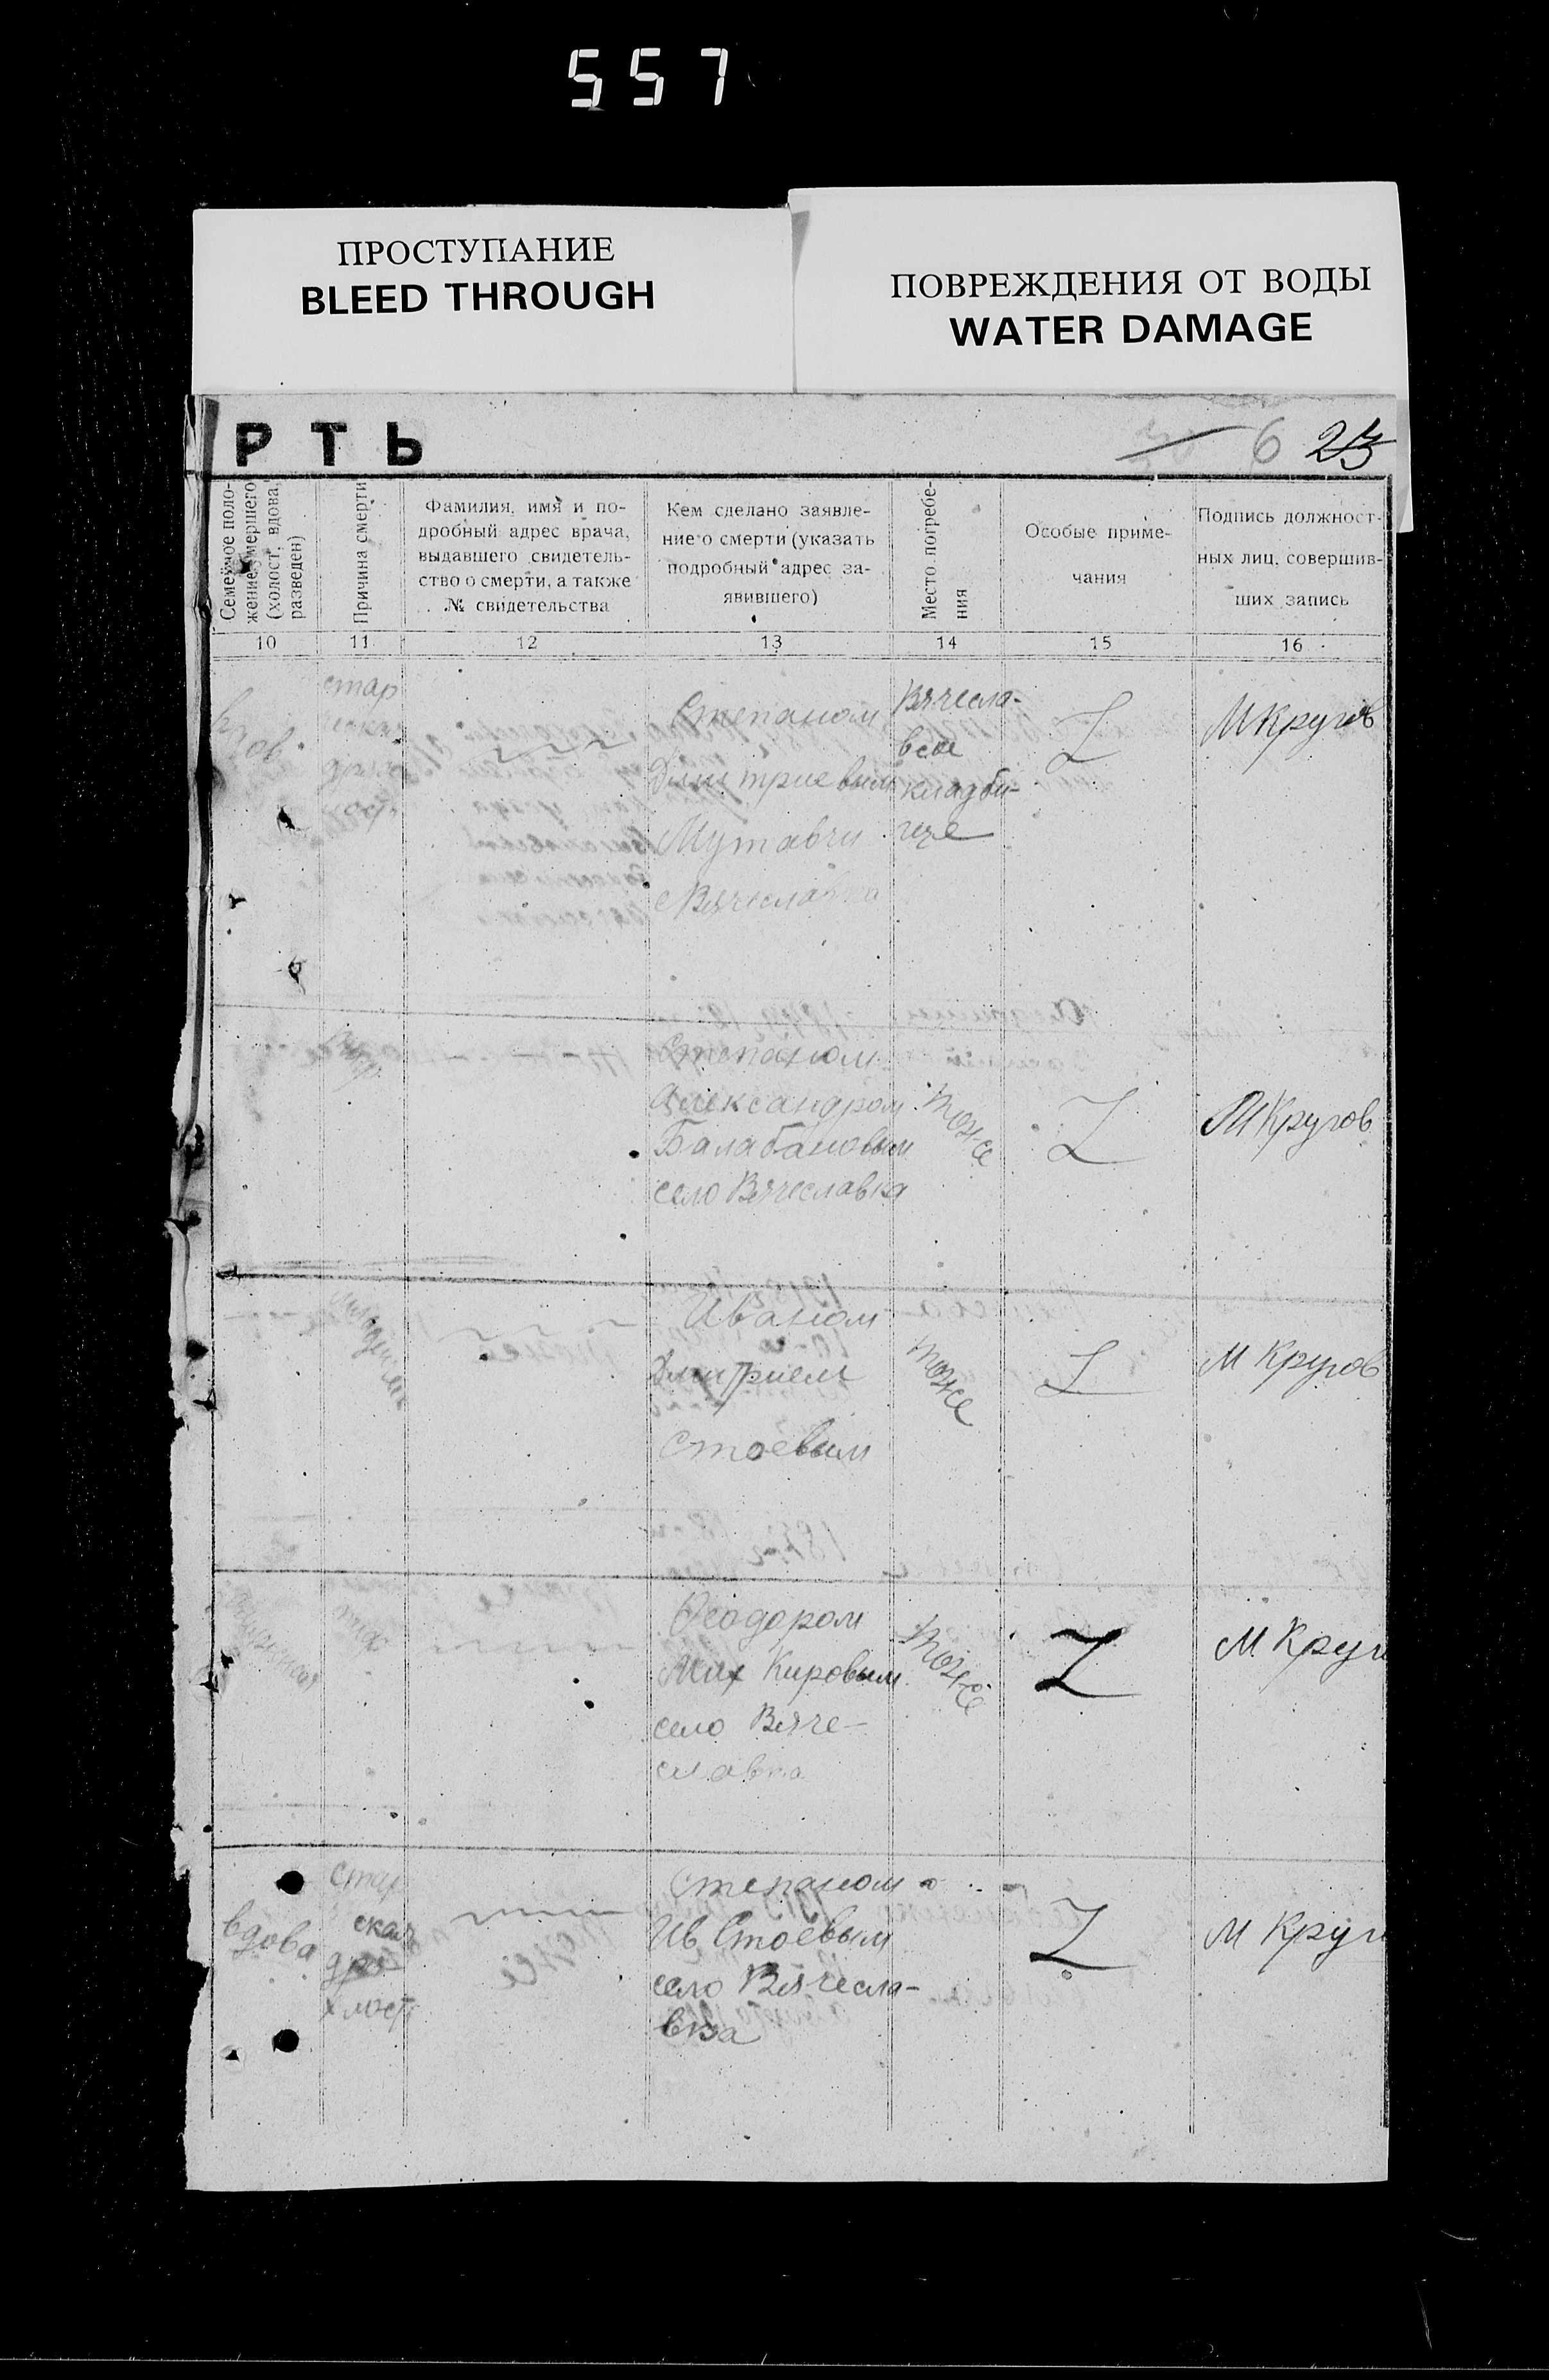 557
ПРОСТУПАНИЕ
BLEED THROUGH
ПОВРЕЖДЕНИЯ ОТ ВОДЫ
WATER DAMAGE
РТЬ
6 23
Семейное поло-
жение умершего
(холост, вдова,
разведен)
Причина смерти
Фамилия, имя и по-
дробный адрес врача,
выдавшего свидетель-
ство о смерти, а также
№ свидетельства
Кем сделано заявле-
ние о смерти (указать
подробный адрес за-
явившего)
Место погребе-
ния
Особые приме-
чания
Подпись должност-
ных лиц, совершив-
ших запись
10 11 12 13 14 15 16
стар
Степаном
Дмитриевым
Мутавчи
с Вячеславка
Вячесла-
вское
кладби-
ще
Z
МКругов
Степаном
Александром
Балабановым
село Вячеславка
тоже
Z
МКругов
Иваном
Дмитрием
Стоевым
тоже
Z
М Кругов
тиф
Феодором
Мих Кировым
село Вяче-
славка
тоже
Z
М. Круг
вдова
стар
ская
дрях
лость
Степаном
Ив Стоевым
село Вячесла-
вка
Z
М Круг